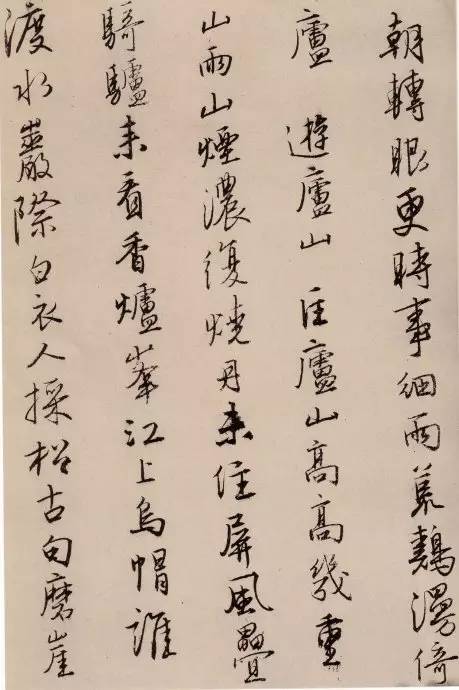 朝轉眼更時事細雨荒鷄漫倚
廬 遊廬山 匡廬山高高幾重
山雨山煙濃復燒丹未住屏風疊
騎驢來看香爐峯江上烏帽誰
渡水巖際白衣人採松古句磨崖